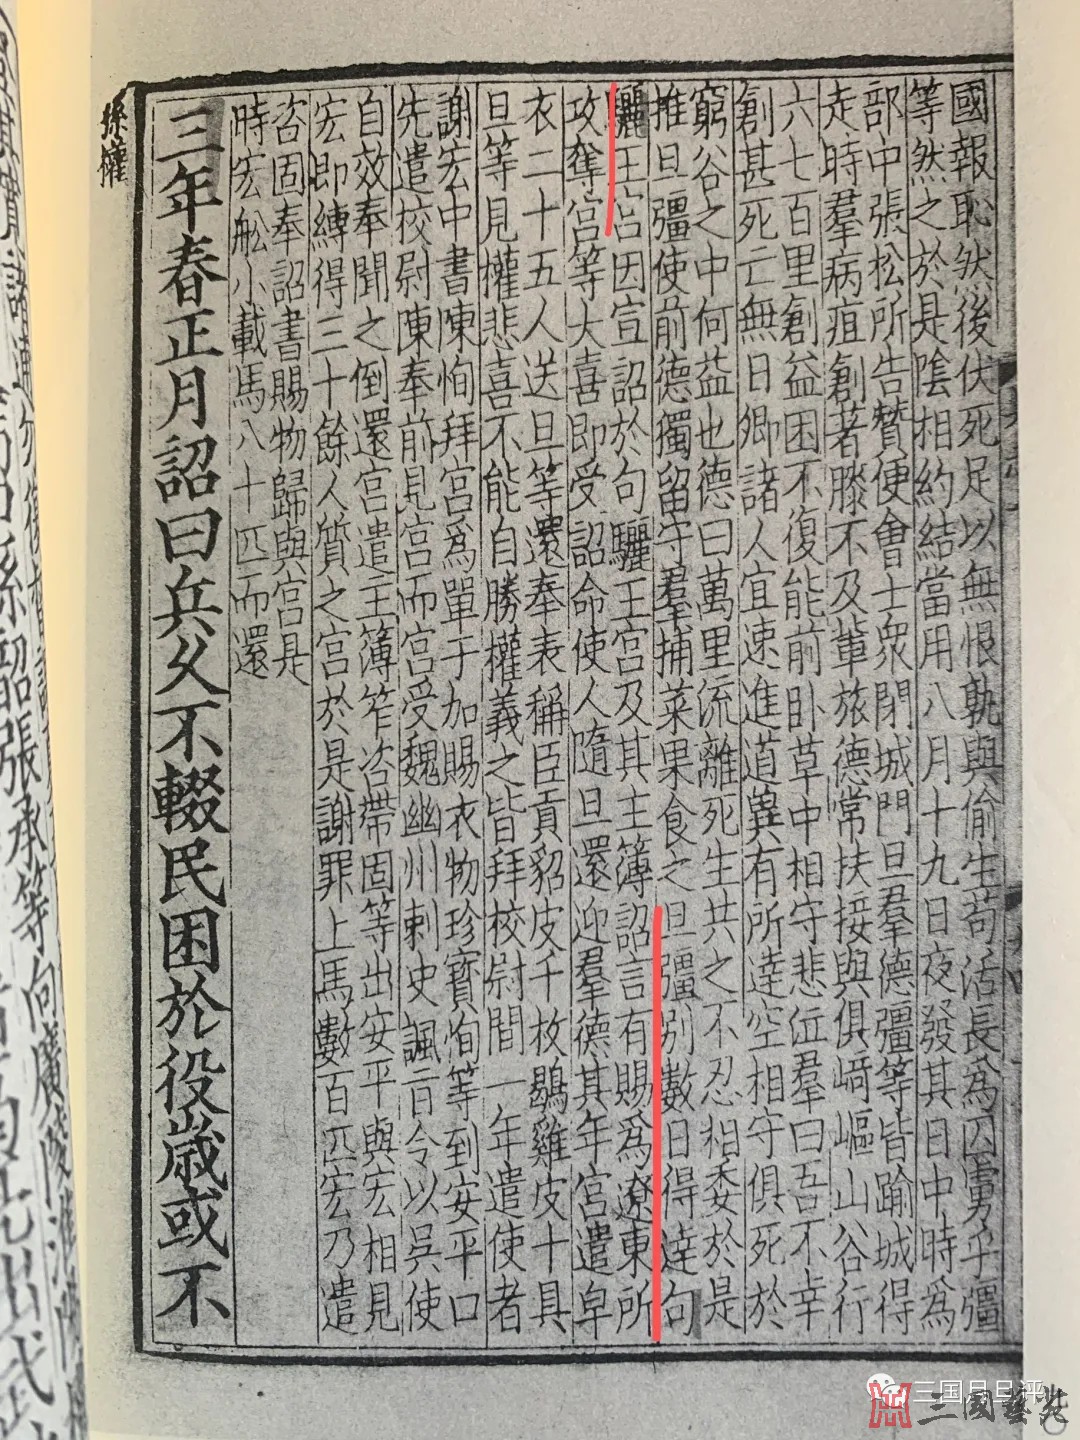 國報恥然後伏死足以無恨孰與偷生苟活長為囚虜乎彊
等然之於是陰相約結當用八月十九日夜發其日中時為
部中張松所告贊便會士眾閉城門旦羣德彊等皆踰城得
走時羣病疽創著膝不及輩旅德常扶接與俱崎嶇山谷行
六七百里創益困不復能前卧草中相守悲泣羣曰吾不幸
創甚死亡無日卿諸人宜速進道冀有所達空相守俱死於
窮谷之中何益也德曰萬里流離死生共之不忍相委於是
推旦彊使前德獨留守羣捕菜果食之旦彊別數日得達句
驪王宮因宣詔於句驪王宮及其主簿詔言有賜為遼東所
攻奪宮等大喜即受詔命使人隨旦還迎羣德其年宮遣皁
衣二十五人送旦等還奉表稱臣貢貂皮千枚鶡雞皮十具
旦等見權悲喜不能自勝權義之皆拜校尉間一年遣使者
謝宏中書陳恂拜宮爲單于加賜衣物珍寶恂等到安平口
先遣校尉陳奉前見宮而宮受魏幽州刺史諷旨令以吳使
自效奉聞之倒還宮遣主簿笮咨帶固等出安平與宏相見
宏即縛得三十餘人質之宮於是謝罪上馬數百匹宏乃遣
咨固奉詔書賜物歸與宮是
時宏舩小載馬八十匹而還
三年春正月詔曰兵久不輟民困於役歲或不
孫權
三国月旦评
三國藝苑